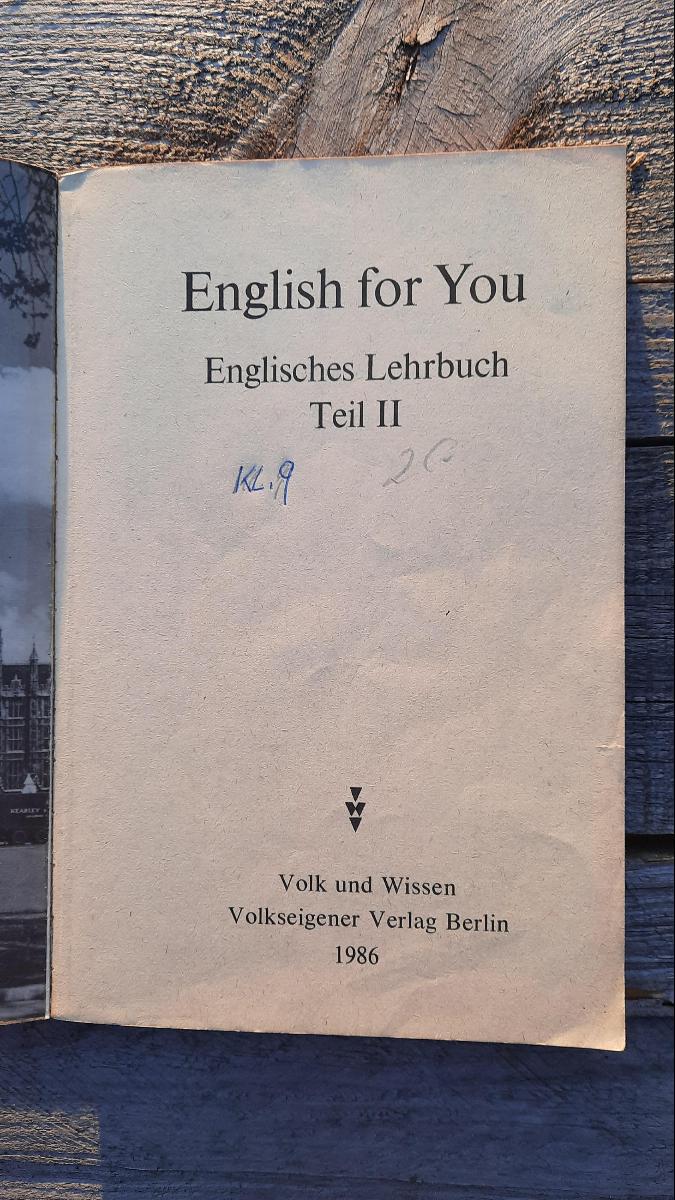 English for You
Englisches Lehrbuch
Teil II
KL. 9
Volk und Wissen
Volkseigener Verlag Berlin
1986